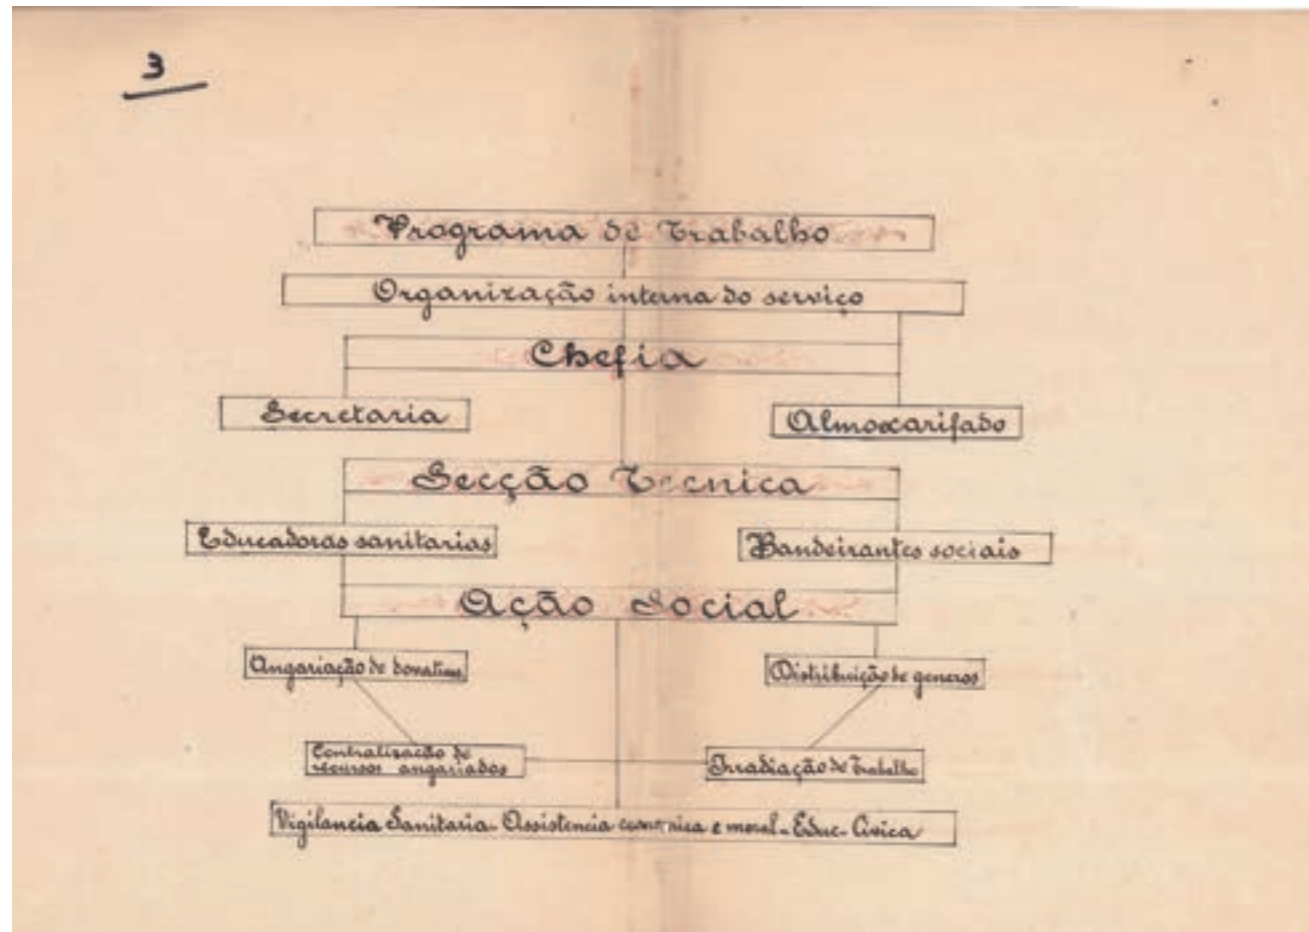 3
Programa de Trabalho
Organização interna do serviço
Chefia
Secretaria
Almoxarifado
Secção Tecnica
Educadoras sanitarias
Bandeirantes sociais
Ação Social
Angariação de donativos
Distribuição de generos
Centralização de
recursos angariados
Irradiação de Trabalho
Vigilancia Sanitaria - Assistencia economica e moral - Educ - Civica